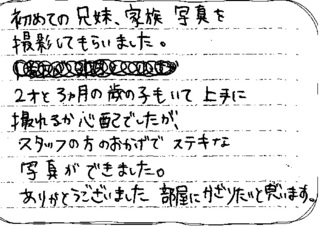 初めての兄妹、家族写真を
撮影してもらいました。
2才と3ヶ月の歳の子もいて上手に
撮れるか心配でしたが、
スタッフの方のおかげでステキな
写真ができました。
ありがとうございました 部屋にかざりたいと思います。